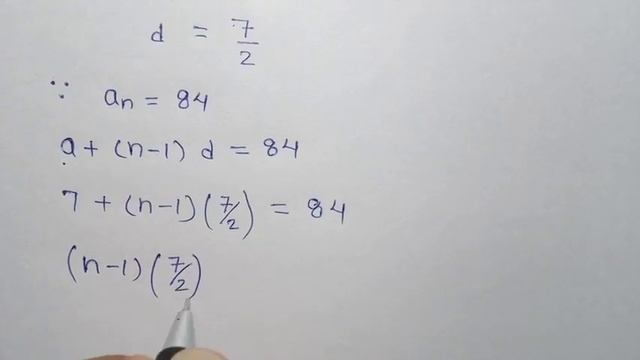 d = 7/2
∵ an = 84
a + (n-1) d = 84
7 + (n-1) (7/2) = 84
(n-1) (7/2)